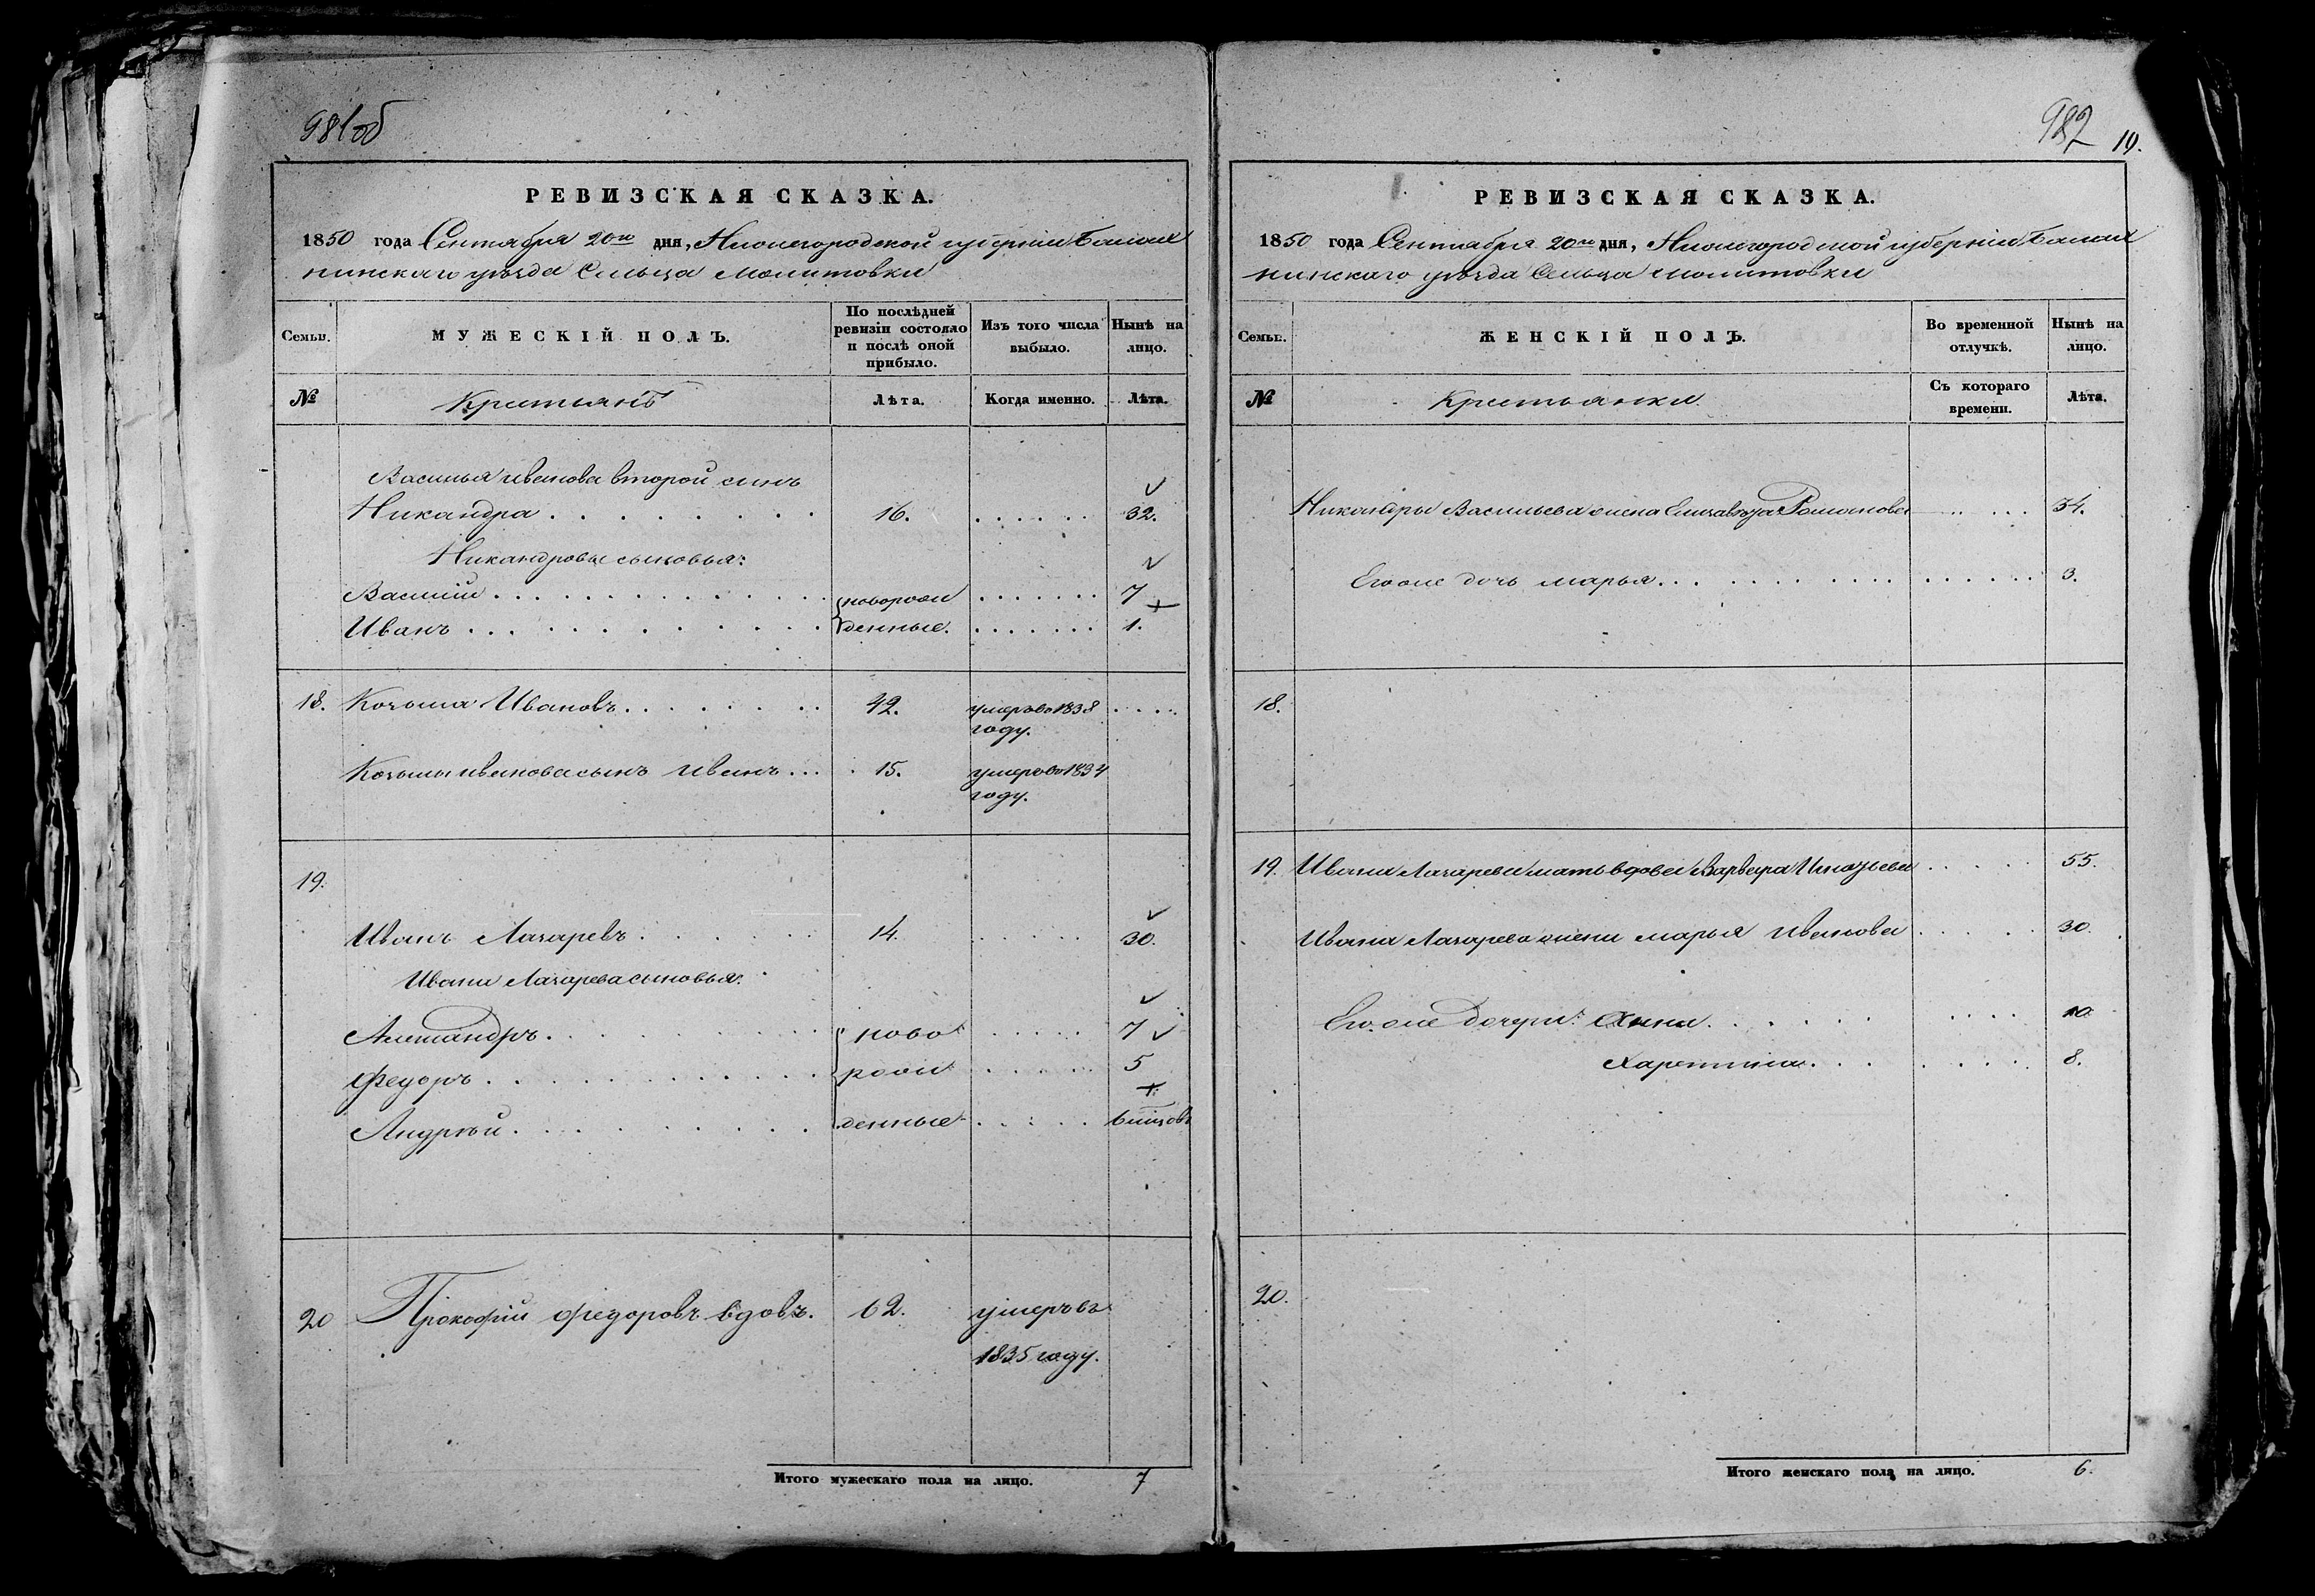 981об
РЕВИЗСКАЯ СКАЗКА.
1850 года Сентября 20го дня, Нижегородской губерніи Балах
нинскаго уѣзда Сельца Молитовки
Семьи.
МУЖЕСКІЙ ПОЛЪ.
По послѣдней ревизіи состояло и послѣ оной прибыло.
Изъ того числа выбыло.
Нынѣ на лицо.
№
Крестьянъ
Лѣта.
Когда именно.
Лѣта.
Василья Иванова второй сынъ
Никандра 16. 32.
Никандровы сыновья:
Василій новорож 7
Иванъ денные. 1.
18. Козьма Ивановъ 42. умеръ въ 1838
году.
Козьмы Иванова сынъ Иванъ 15. умеръ въ 1834
году.
19.
Иванъ Лазаревъ 14. 30.
Ивана Лазарева сыновья:
Александръ ново 7
Федоръ рож 5
Андрей денные
20 Прокофій Федоровъ вдовъ. 62. умеръ въ
1835 году.
Итого мужескаго пола на лицо. 7
982
19.
РЕВИЗСКАЯ СКАЗКА.
1850 года Сентября 20го дня, Нижегородской губерніи Балах
нинскаго уѣзда Сельца Молитовки
Семьи.
ЖЕНСКІЙ ПОЛЪ.
Во временной отлучкѣ.
Нынѣ на лицо.
№
Крестьянки
Съ котораго времени.
Лѣта.
Никандры Васильева жена Елизавета Романова 34.
Его же дочь Марья 3.
18.
19. Ивана Лазарева мать вдова Варвара Игнатьева 55.
Ивана Лазарева жена Марья Иванова 30.
Его же дочери: Анна 10
Харетина 8.
20.
Итого женскаго пола на лицо. 6.